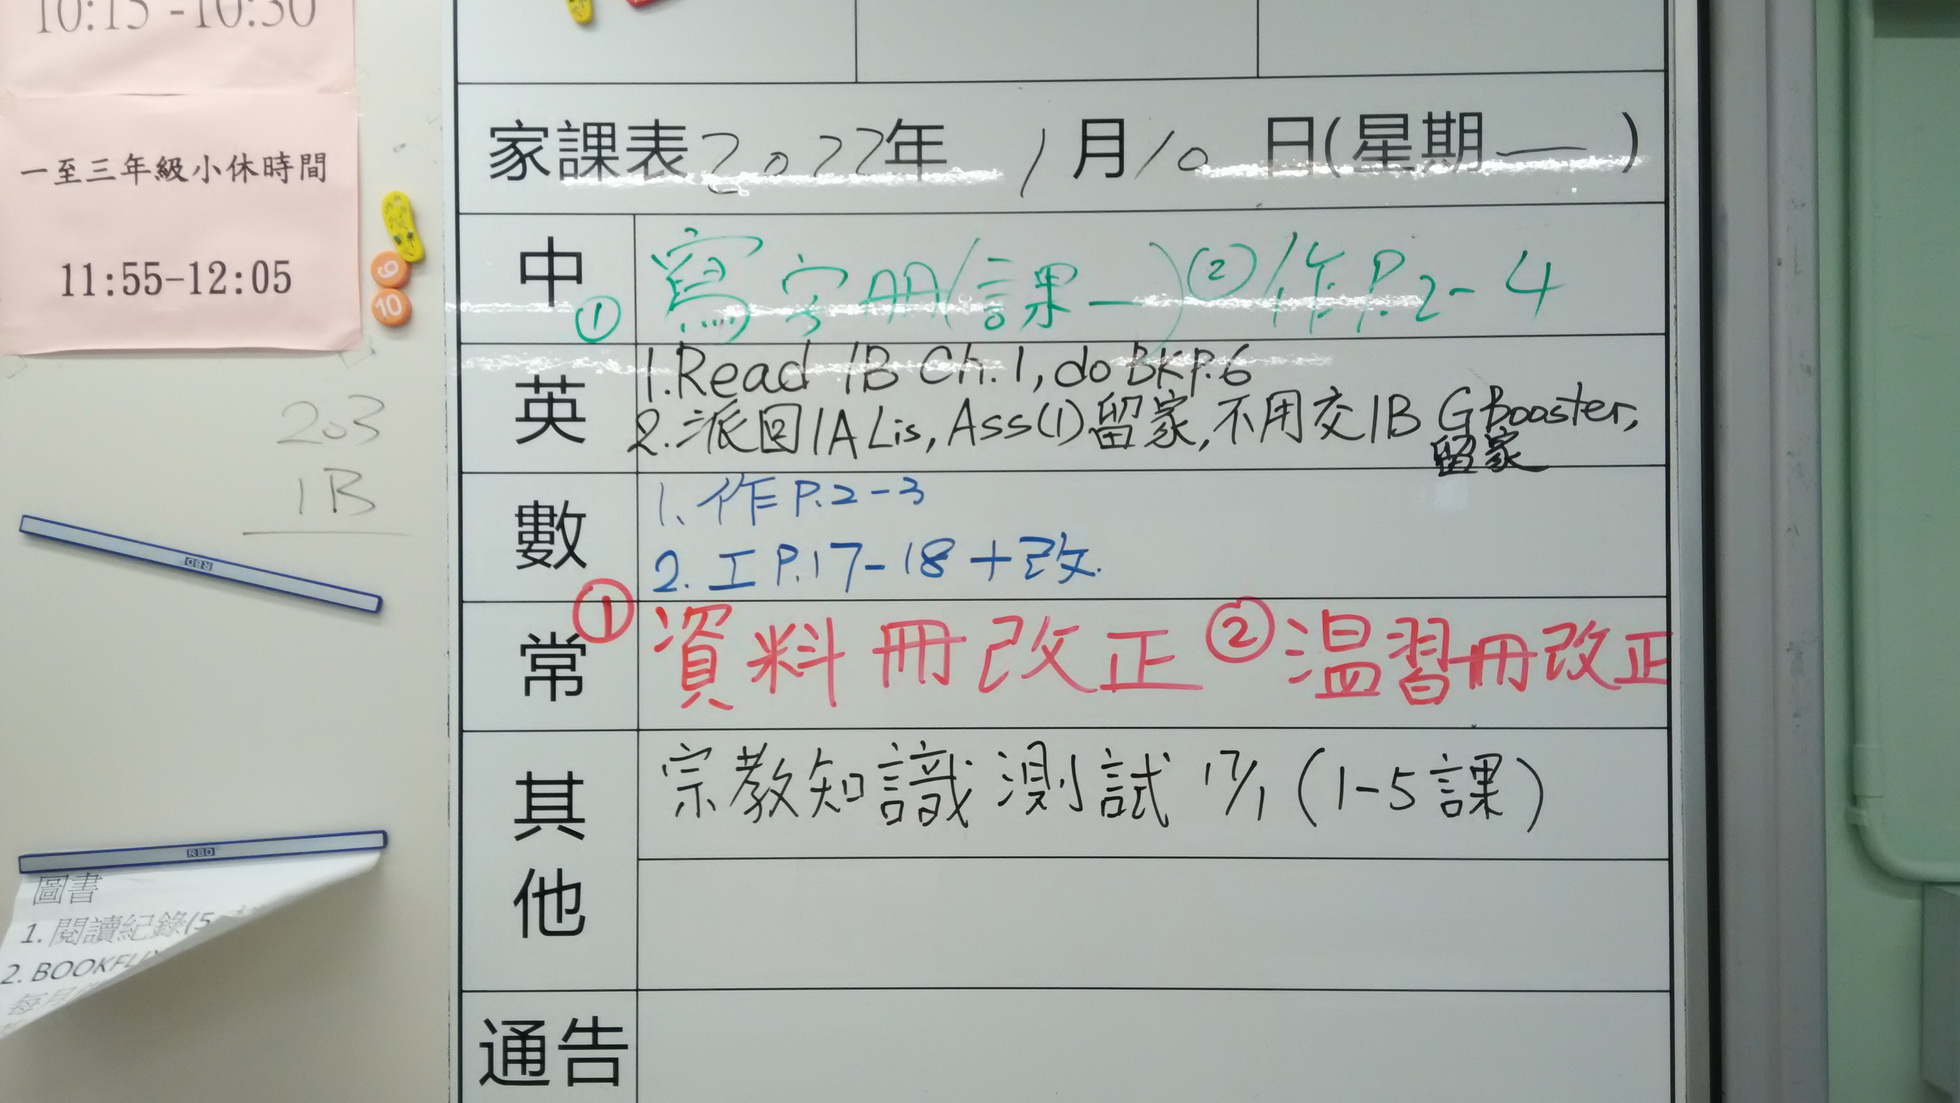 10:15-10:30
一至三年級小休時間
11:55-12:05
9
10
203
1B
RBD
RBD
圖書
1. 閱讀紀錄(5
2. BOOKFLI
每月
家課表2022年 1月10日(星期一)
中 ①寫字册(課一)②作P.2-4
英 1.Read 1B Ch.1, do BKP.6
2.派回1A Lis, Ass(1)留家,不用交1B GBooster,
留家
數 1.作P.2-3
2.工P.17-18+改.
常 ①資料冊改正 ②温習冊改正
其他 宗教知識測試 17/1 (1-5課)
通告